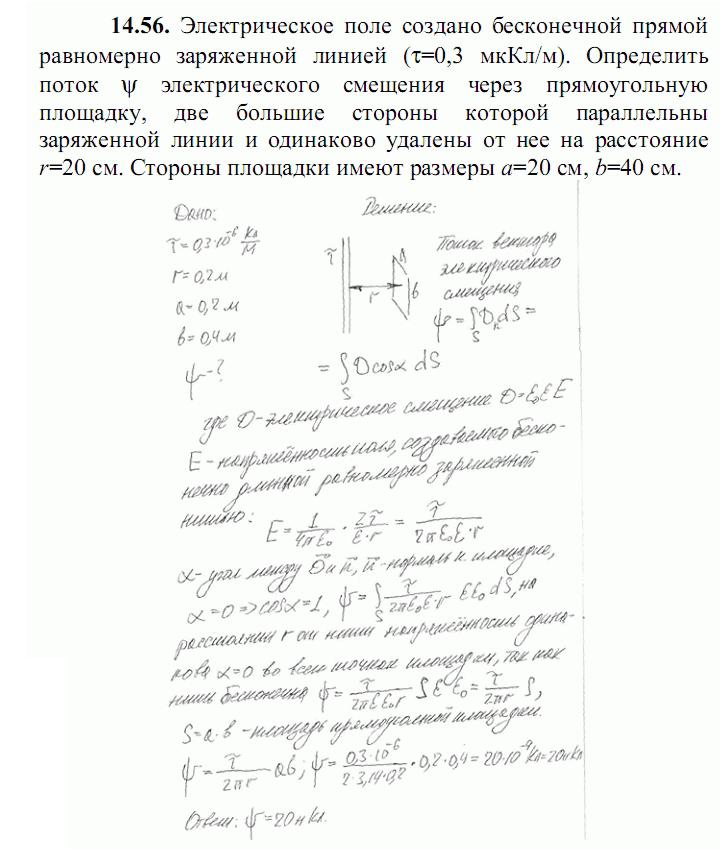 14.56. Электрическое поле создано бесконечной прямой
равномерно заряженной линией (τ=0,3 мкКл/м). Определить
поток ψ электрического смещения через прямоугольную
площадку, две большие стороны которой параллельны
заряженной линии и одинаково удалены от нее на расстояние
r=20 см. Стороны площадки имеют размеры a=20 см, b=40 см.
Дано:
τ = 0,3·10⁻⁶ Кл/м
r = 0,2 м
a = 0,2 м
b = 0,4 м
ψ - ?
Решение:
τ r a b
Поток вектора
электрического
смещения
ψ = ∫_S D_n dS =
= ∫_S D cosα dS
где D - электрическое смещение D = ε₀εE
E - напряжённость поля, создаваемого беско-
нечно длинной равномерно заряженной
нитью: E = 1/(4πε₀) · 2τ/(ε·r) = τ/(2πε₀ε·r)
α - угол между D⃗ и n⃗, n⃗ - нормаль к площадке,
α = 0 => cosα = 1, ψ = ∫_S τ/(2πε₀ε·r) εε₀ dS, на
расстоянии r от нити напряжённость одина-
кова α = 0 во всех точках площадки, так как
нить бесконечна ψ = τ/(2πεε₀r) S ε ε₀ = τ/(2πr) S,
S = a·b - площадь прямоугольной площадки.
ψ = τ/(2πr) ab; ψ = 0,3·10⁻⁶/(2·3,14·0,2) · 0,2·0,4 = 20·10⁻⁹ Кл = 20 нКл
Ответ: ψ = 20 нКл.